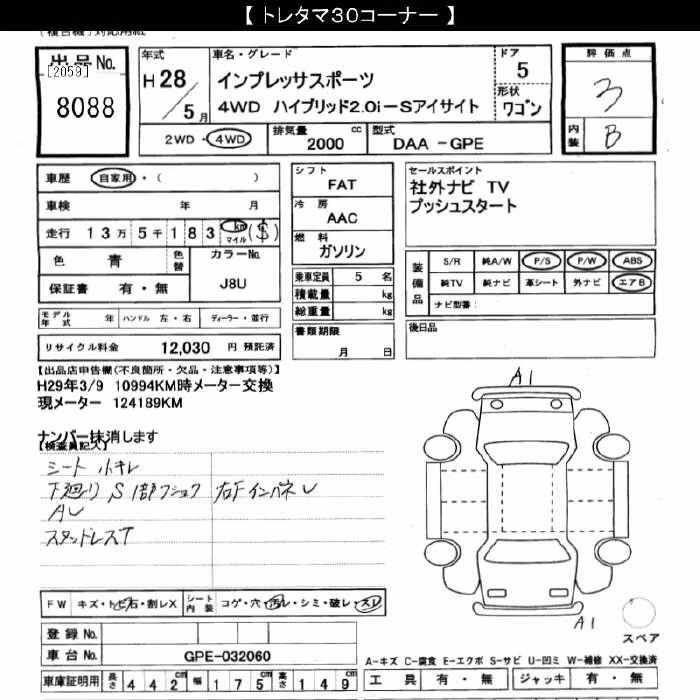 【 トレタマ30コーナー 】
(複合機)対応用紙
出品No.
[2059]
8088
年式
H28
5月
車名・グレード
インプレッサスポーツ
4WD ハイブリッド2.0i-Sアイサイト
ドア
5
形状
ワゴン
評価点
3
内装
B
2WD・4WD
排気量 2000 cc
型式 DAA -GPE
車歴 自家用・( )
車検 年 月
走行 13万5千183 km マイル ($)
色 青 色替 カラーNo.
保証書 有・無 J8U
モデル年式 年 ハンドル 左・右 ディーラー・並行
リサイクル料金 12,030 円 預託済
シフト
FAT
冷房
AAC
燃料
ガソリン
乗車定員 5 名
積載量 kg
総重量 kg
書類期限
月 日
セールスポイント
社外ナビ TV
プッシュスタート
装備品
S/R 純A/W P/S P/W ABS
純TV 純ナビ 革シート 外ナビ エアB
ナビ型番:
後日品
【出品店申告欄(不良箇所・欠品・注意事項等)】
H29年3/9 10994KM時メーター交換
現メーター 124189KM
ナンバー抹消します
【検査員記入】
シート 小キレ
下廻り S 1部フショク 右Fインパネ U
AU
スタッドレスT
FW キズ・トビ石・割レX シート内装 コゲ・穴・汚レ・シミ・破レ・スレ
登録No.
車台No. GPE-032060
車庫証明用 長さ 442cm 幅 175cm 高さ 149cm
A1
A1
スペア
A-キズ C-腐食 E-エクボ S-サビ U-凹ミ W-補修 XX-交換済
工具 有・無 ジャッキ 有・無